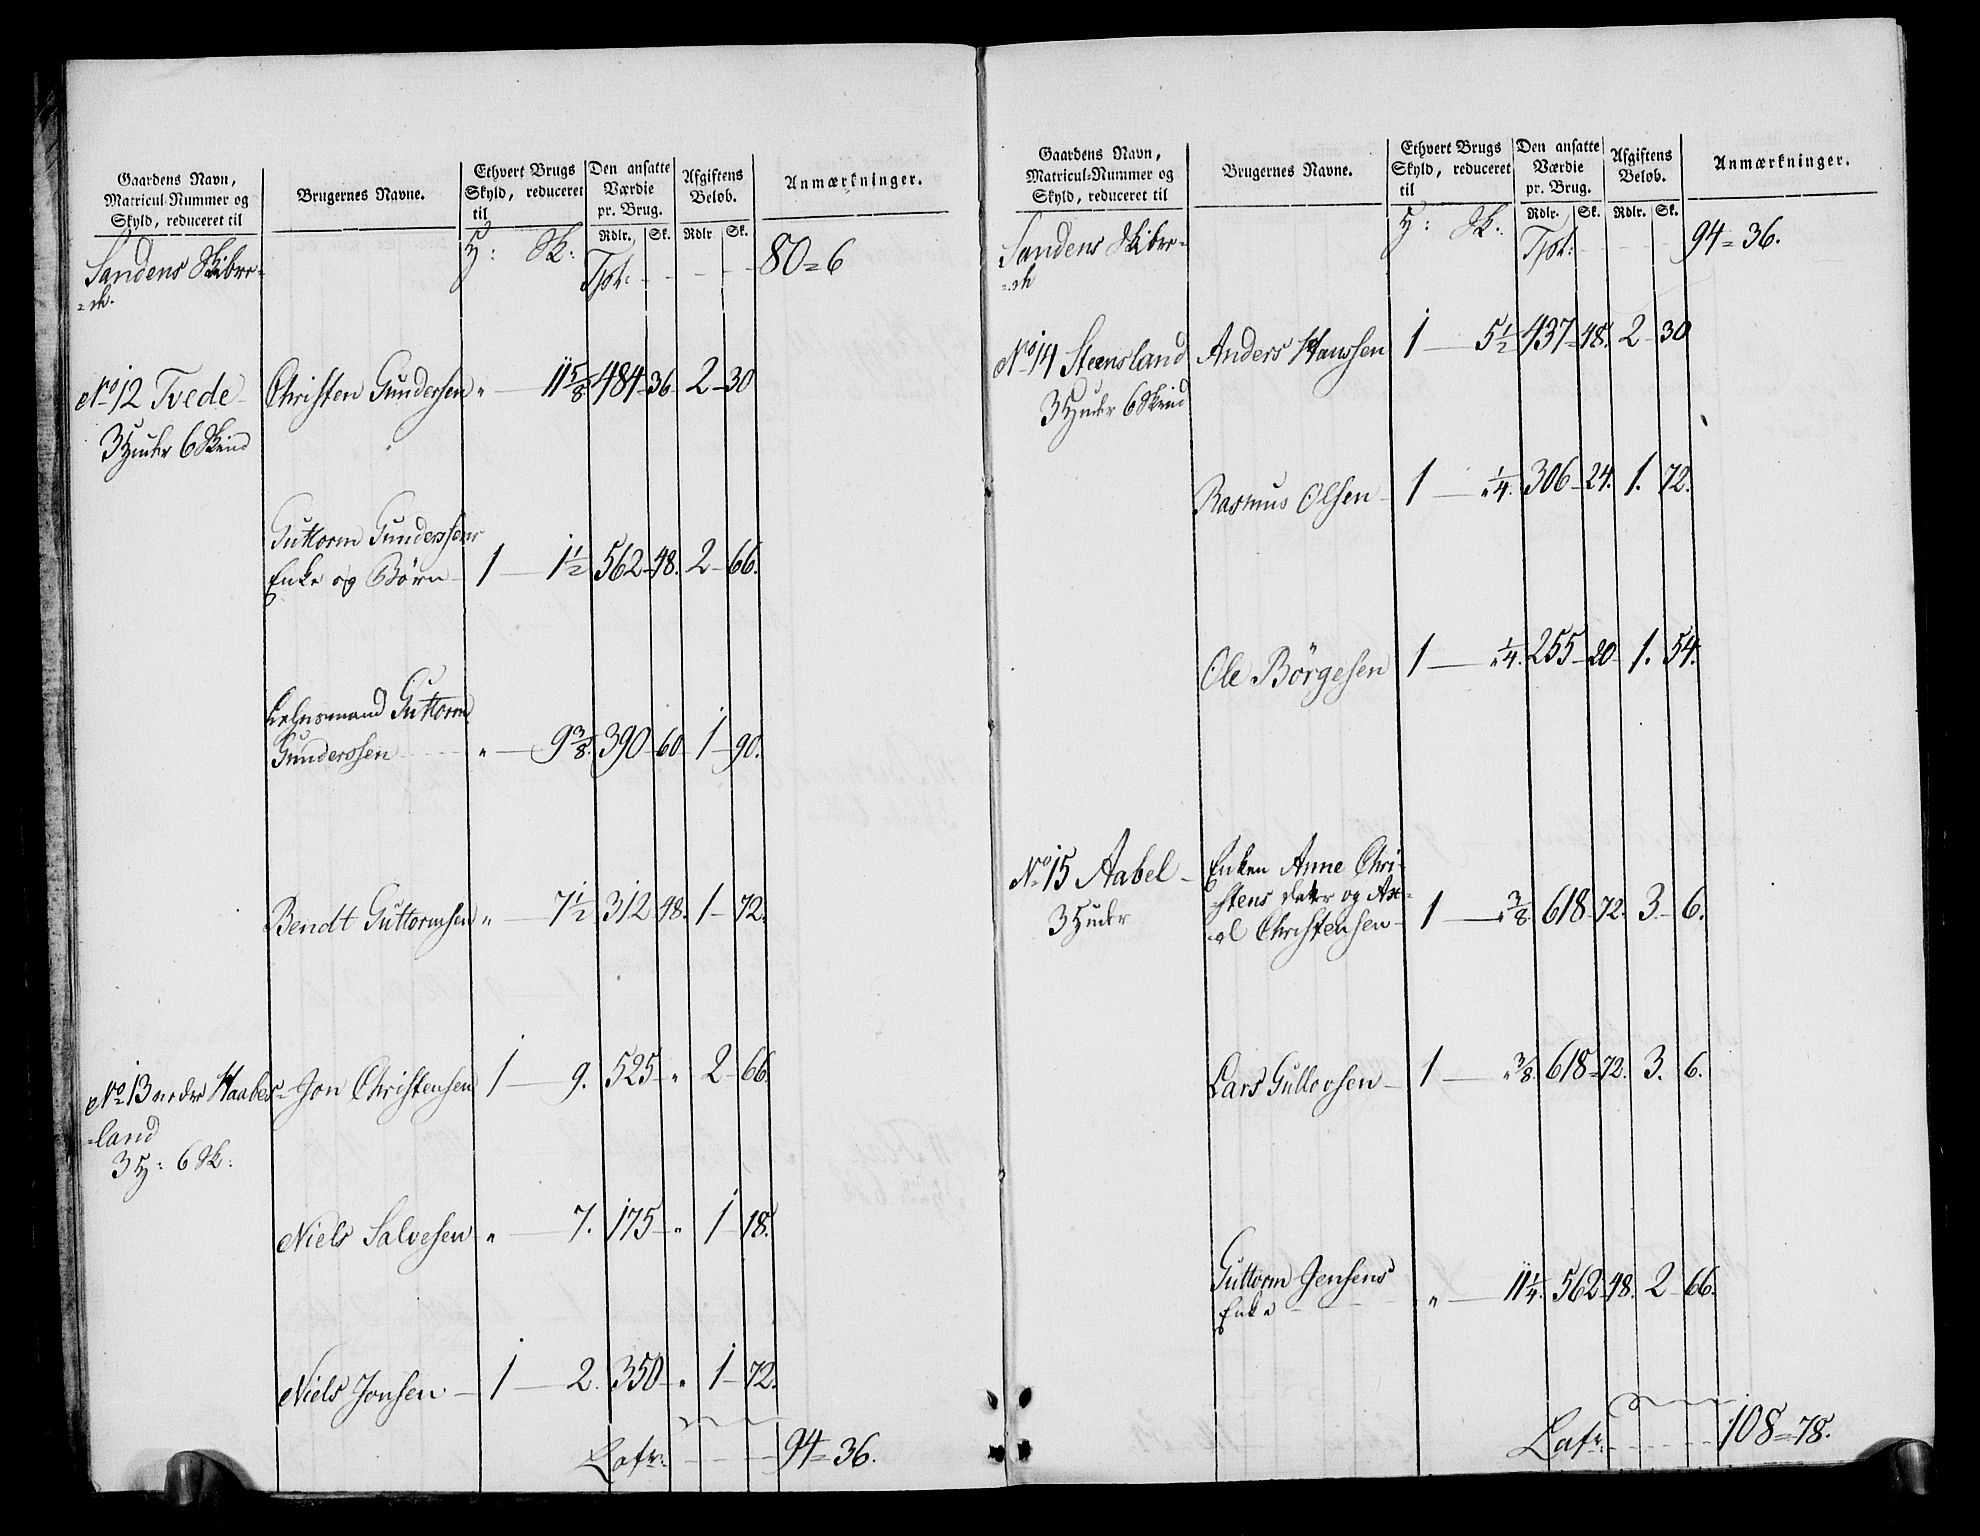 Gaardens Navn,
Matricul-Nummer og
Skyld, reduceret til
Brugernes Navne.
Ethvert Brugs
Skyld, reduceret
til
Den ansatte
Værdie
pr. Brug.
Rdlr. Sk.
Afgiftens
Beløb.
Rdlr Sk.
Anmærkninger.
Sandens Skibre-
H: Sk:
Tpt: - - - - 80=6
No 12 Tvede Christen Gundersen „ — 11 5/8 484 - 36 - 2 - 30
3 Huder 6 Skind
Guttorm Gunderssens
Enke og Børn 1 — 1 1/2 562 - 48. 2 - 66.
Lehnsmand Guttorm
Gunderssen - - - „ — 9 3/8. 390 - 60 - 1 - 90.
Bendt Guttormsen „ — 7 1/2 312 - 48. 1 - 72.
No 13 nedre Haabes- Jon Christensen 1 — 9. 525 - „ 2 - 66.
-land
3 H: 6 Sk:
Niels Salvesen „ — 7. 175 - „ 1 18.
Niels Jonsen — 1 — 2. 350 - „ 1 - 72.
Latr: - - - 94=36.
Gaardens Navn,
Matricul-Nummer og
Skyld, reduceret til
Brugernes Navne.
Ethvert Brugs
Skyld, reduceret
til
Den ansatte
Værdie
pr. Brug.
Rdlr. Sk.
Afgiftens
Beløb.
Rdlr. Sk.
Anmærkninger.
Sandens Skibre-
H: Sk:
Tpt: - - - - 94=36.
No 14 Steensland Anders Hanssen 1 — 5 1/2 437 - 48. 2 - 30
3 Huder 6 Skind
Rasmus Olsen 1 — „ 1/4. 306 - 24. 1. 72.
Ole Børgesen 1 — „ 1/4. 255 - 20 - 1. 54.
No 15 Aabel - Enken Anne Chri-
3 Huder
stens dater og Ax-
-el Christensen - 1 — „ 3/8. 618 - 72. 3 - 6.
Lars Gullovsen - 1 — „ 3/8. 618 - 72. 3. 6.
Guttorm Jensens
Enke - - - „ — 11 1/4. 562 - 48. 2 - 66.
Latr: - - - 108=78.